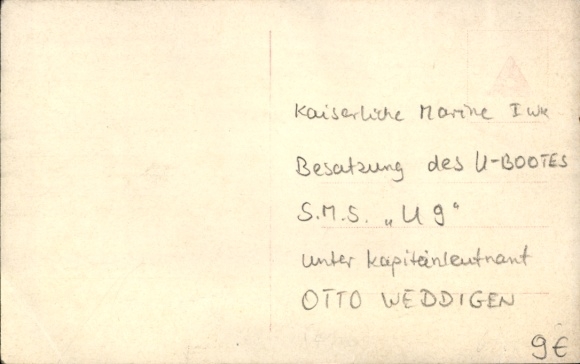 Kaiserliche Marine I WK
Besatzung des U-BOOTES
S.M.S. „U 9“
unter Kapitänleutnant
OTTO WEDDIGEN
9€